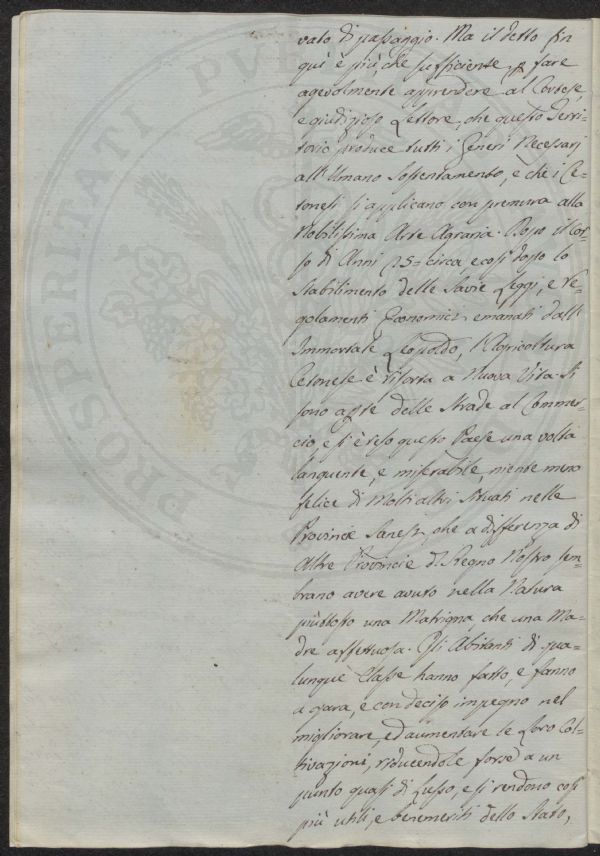 vato di passaggio. Ma il detto fin
quì è più, che sufficiente p fare
agevolmente apprendere al Cortese,
e giudizioso Lettore, che questo Terri=
torio produce tutti i Generi Necessarj
all'Umano Sostentamento, e che i Ce=
tonesi si applicano con premura alla
Nobilissima Arte Agraria. Dopo il cor=
so di Anni 25= circa, e così dopo lo
Stabilimento delle Savie Leggi, e Re=
golamenti Economici emanati dall'
Immortale Leopoldo, l'Agricoltura
Cetonese è risorta a Nuova Vita. Si
sono apte delle Strade al Commer=
cio, e si è reso questo Paese una volta
languente, e miserabile, niente meno
felice di Molti altri Situati nelle
Provincie Sanesi, che a differenza di
Altre Provincie del Regno Nostro sem=
brano avere avuto nella Natura
piùttosto una Matrigna, che una Ma=
dre affettuosa. Gli Abitanti di qua=
lunque Classe hanno fatto, e fanno
a gara, e con deciso impegno nel
migliorare, ed aumentare le Loro Col=
tivazioni, riducendole forse a un
punto quasi di Lusso, e si rendono così
più utili, e benemeriti dello Stato,
PROSPERITATI PVB